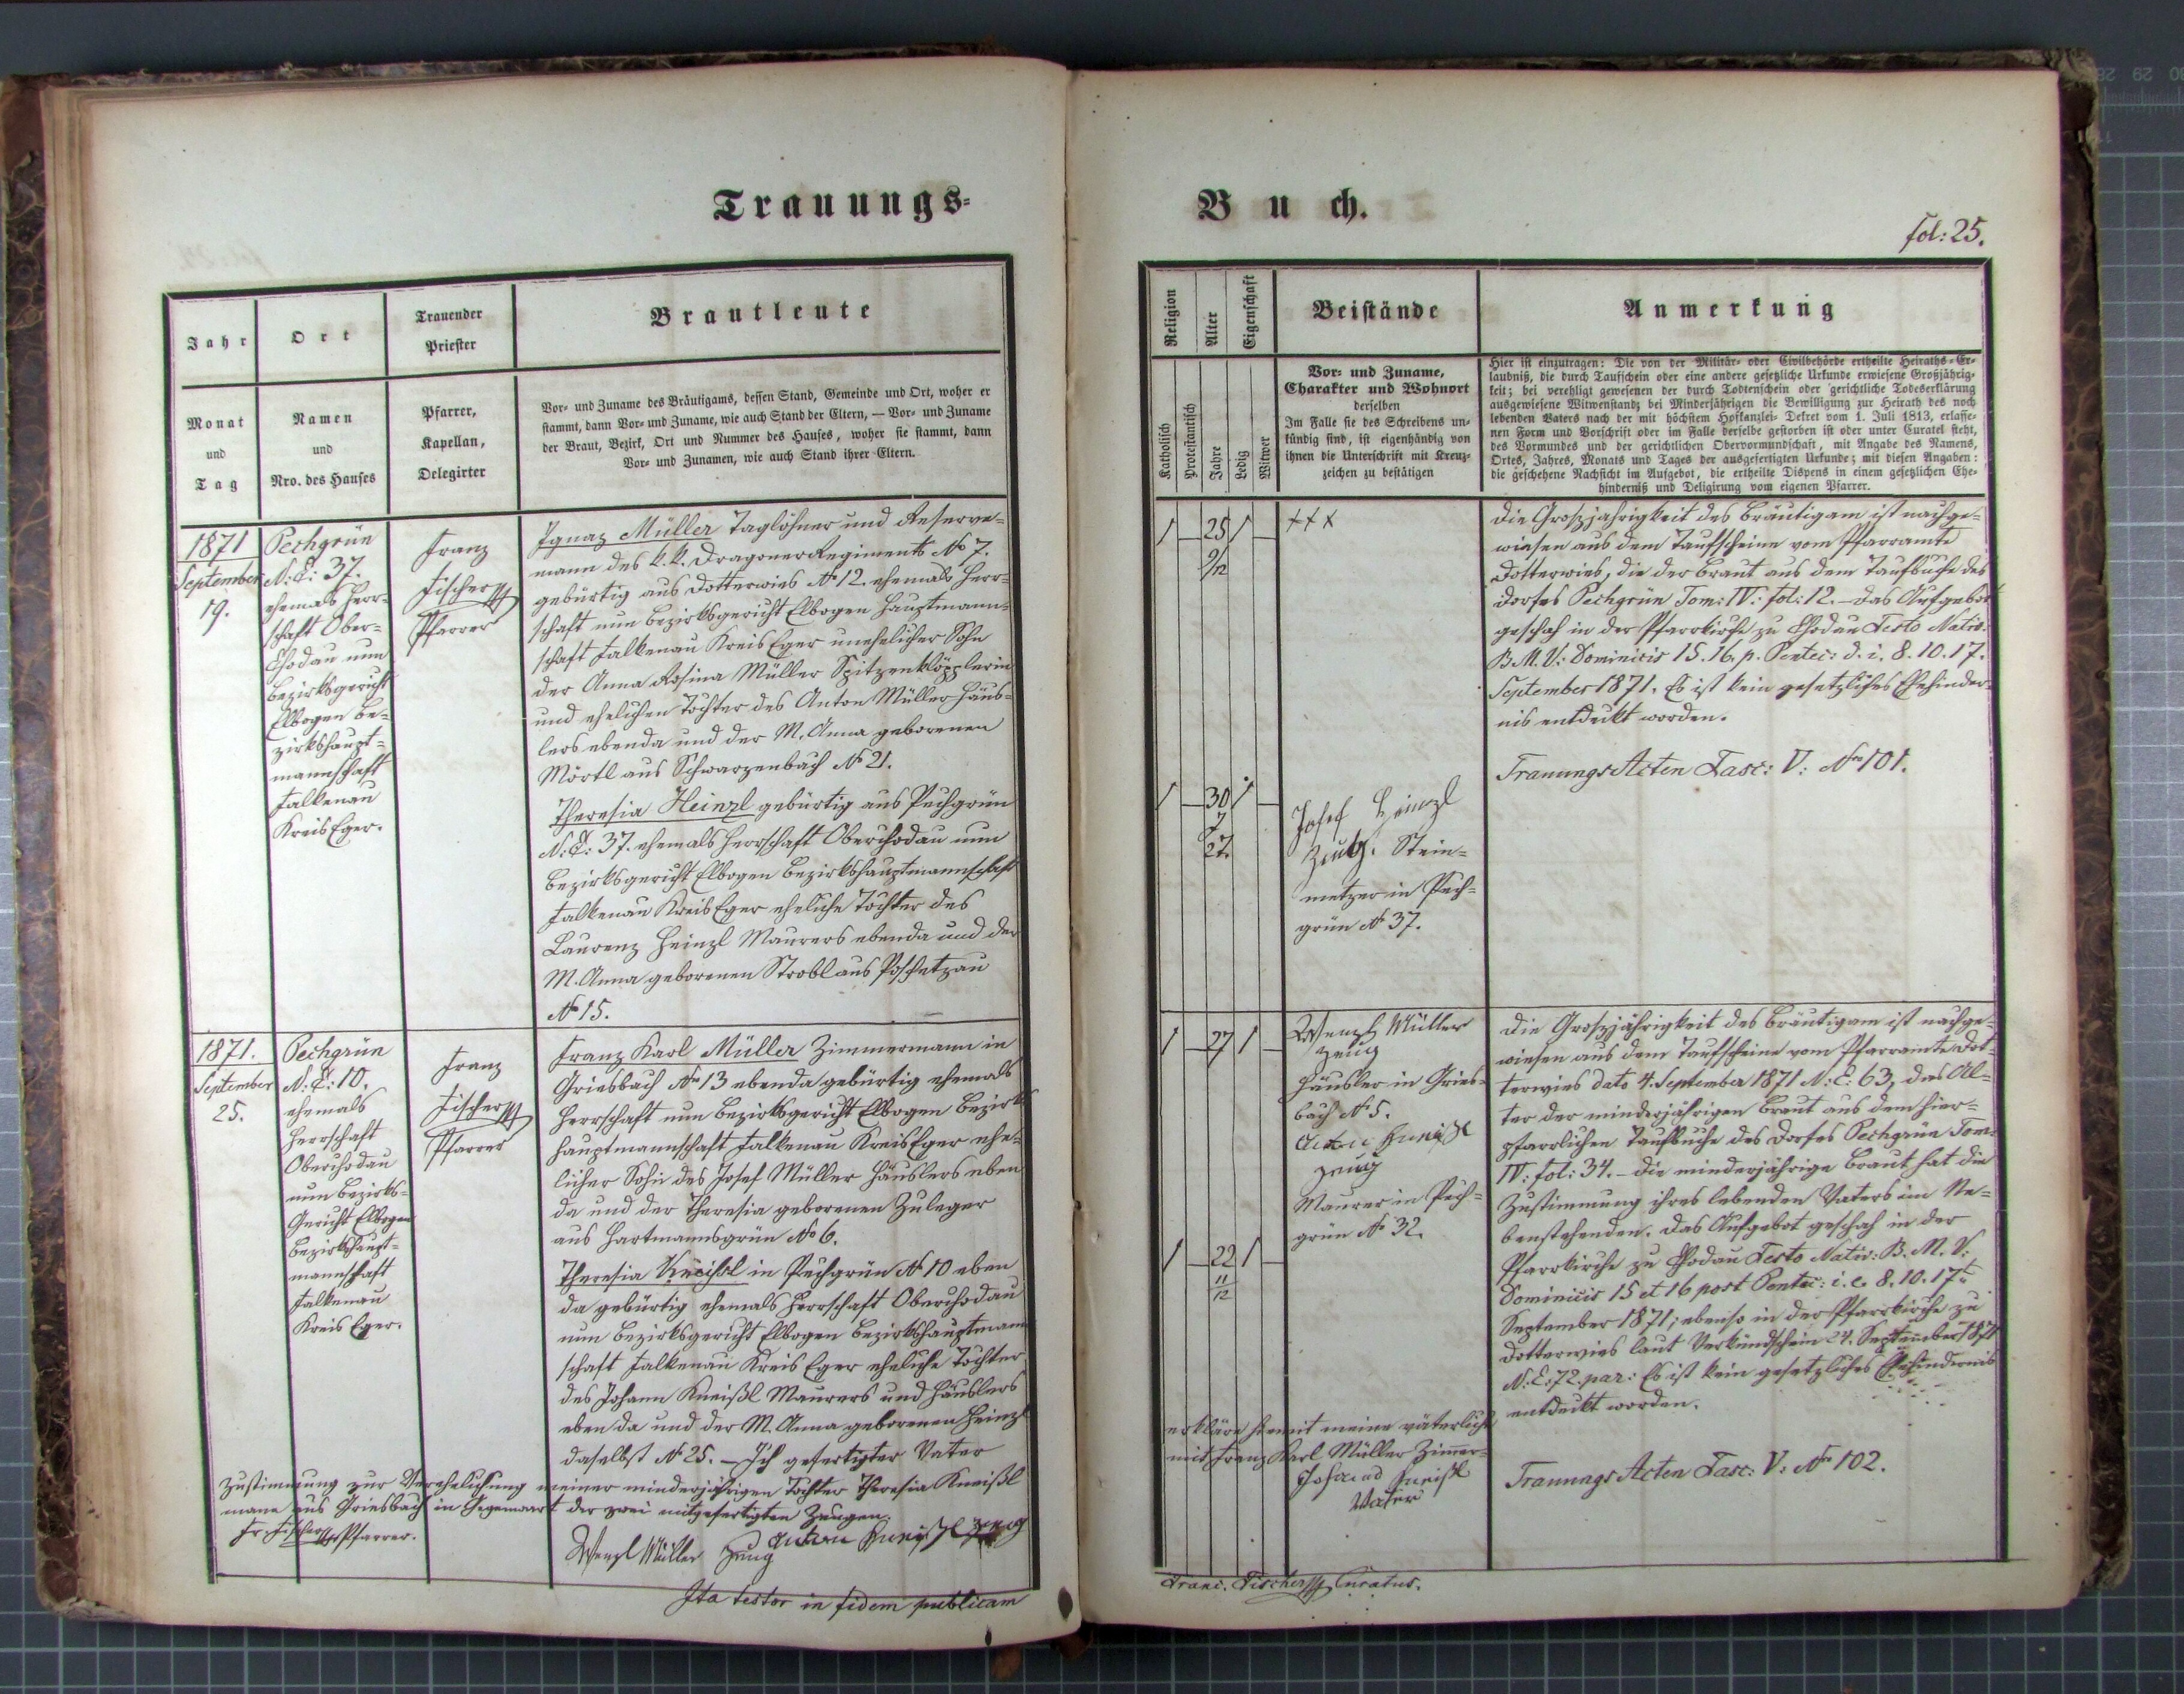 Trauungs-
Jahr
Ort
Trauender
Priester
Brautleute
Monat
und
Tag
Namen
und
Nro. des Hauses
Pfarrer,
Kapellan,
Delegirter
Vor- und Zuname des Bräutigams, dessen Stand, Gemeinde und Ort, woher er
stammt, dann Vor- und Zuname, wie auch Stand der Eltern, — Vor- und Zuname
der Braut, Bezirk, Ort und Nummer des Hauses, woher sie stammt, dann
Vor- und Zunamen, wie auch Stand ihrer Eltern.
1871
September
19.
Pechgrün
N: C: 37.
ehemals Herr-
schaft Ober-
Chodau nun
Bezirksgericht
Elbogen Be-
zirkshaupt-
mannschaft
Falkenau
Kreis Eger.
Franz
Fischer
Pfarrer
Ignaz Müller Taglöhner und Reserve-
mann des k.k. Dragoner Regiments No 7.
gebürtig aus Dotterwies No 12. ehemals Herr-
schaft nun Bezirksgericht Elbogen Hauptmann-
schaft Falkenau Kreis Eger unehelicher Sohn
der Anna Rosina Müller Spitzenklöpplerin
und ehelichen Tochter des Anton Müller Häus-
lers ebenda und der M. Anna geborenen
Mörtl aus Schwarzenbach No 21.
Theresia Heinzl gebürtig aus Pechgrün
N: C: 37. ehemals Herrschaft Oberchodau nun
Bezirksgericht Elbogen Bezirkshauptmannschaft
Falkenau Kreis Eger eheliche Tochter des
Laurenz Heinzl Maurers ebenda und der
M. Anna geborenen Strobl aus Poschetzau
No 15.
1871.
September
25.
Pechgrün
N: C: 10.
ehemals
Herrschaft
Oberchodau
nun Bezirks-
Gericht Elbogen
Bezirkshaupt-
mannschaft
Falkenau
Kreis Eger.
Franz
Fischer
Pfarrer
Franz Karl Müller Zimmermann in
Griesbach No 13 ebenda gebürtig ehemals
Herrschaft nun Bezirksgericht Elbogen Bezirks
hauptmannschaft Falkenau Kreis Eger ehe-
licher Sohn des Josef Müller Häuslers eben
da und der Theresia geborenen Zuleger
aus Hartmannsgrün No 6.
Theresia Kneißl in Pechgrün No 10 eben
da gebürtig ehemals Herrschaft Oberchodau
nun Bezirksgericht Elbogen Bezirkshauptmann
schaft Falkenau Kreis Eger eheliche Tochter
des Johann Kneißl Maurers und Häuslers
eben da und der M. Anna geborenen Heinzl
daselbst No 25. — Ich gefertigter Vater
Zustimmung zur Verehelichung meiner minderjährigen Tochter Theresia Kneißl
mann aus Griesbach in Gegenwart der zwei mitgefertigten Zeugen.
Fr. Fischer Pfarrer.
Wenzl Müller Zeug Anton Kneißl Zeug
Ita testor in fidem publicam
Buch.
fol: 25.
Religion
Alter
Eigenschaft
Beistände
Anmerkung
Katholisch
Protestantisch
Jahre
Ledig
Witwer
Vor- und Zuname,
Charakter und Wohnort
derselben
Im Falle sie des Schreibens un-
kündig sind, ist eigenhändig von
ihnen die Unterschrift mit Kreuz-
zeichen zu bestätigen
Hier ist einzutragen: Die von der Militär- oder Civilbehörde ertheilte Heiraths-Er-
laubniß, die durch Taufschein oder eine andere gesetzliche Urkunde erwiesene Großjährig-
keit; bei verehligt gewesenen der durch Todtenschein oder gerichtliche Todeserklärung
ausgewiesene Witwenstand; bei Minderjährigen die Bewilligung zur Heirath des noch
lebenden Vaters nach der mit höchstem Hofkanzlei-Dekret vom 1. Juli 1813, erlasse-
nen Form und Vorschrift oder im Falle derselbe gestorben ist oder unter Curatel steht,
des Vormundes und der gerichtlichen Obervormundschaft, mit Angabe des Namens,
Ortes, Jahres, Monats und Tages der ausgefertigten Urkunde; mit diesen Angaben:
die geschehene Nachsicht im Aufgebot, die ertheilte Dispens in einem gesetzlichen Ehe-
hinderniß und Deligirung vom eigenen Pfarrer.
1 25 1
9/12
+++
Die Großjahrigkeit des Bräutigam ist nachge-
wiesen aus dem Taufscheine vom Pfarramte
Dotterwies, die der Braut aus dem Taufbuche des
Dorfes Pechgrün Tom: IV: fol: 12. — Das Aufgebot
geschah in der Pfarrkirche zu Chodau Festo Nativ:
B. M. V: Dominicis 15. 16. p. Pentec: d. i. 8. 10. 17.
September 1871. Es ist kein gesetzliches Ehehinder-
nis entdeckt worden.
Trauungs Acten Fasc: V: Nro 101.
1 30 1
7
27.
Josef Heinzl
Zeug. Stein-
metzer in Pech-
grün No 37.
1 27 1
Wenzl Müller
Zeug
Häusler in Gries-
bach No 5.
Anton Kneißl
Zeug
Maurer in Pech-
grün No 32.
1 22 1
11/12
Die Großjährigkeit des Bräutigam ist nachge-
wiesen aus dem Taufscheine vom Pfarramte Dot-
terwies dato 4. September 1871 N: E: 63, das Al-
ter der minderjährigen Braut aus dem hier-
pfarrlichen Taufbuche des Dorfes Pechgrün Tom:
IV: fol: 34. — Die minderjährige Braut hat die
Zustimmung ihres lebenden Vaters im Ne-
benstehenden. Das Aufgebot geschah in der
Pfarrkirche zu Chodau Festo Nativ: B. M. V:
Dominicis 15 et 16 post Pentec: i. e. 8. 10. 17t
September 1871; ebenso in der Pfarrkirche zu
Dotterwies laut Verkündschein 24. September 1871
N: E: 72. par: Es ist kein gesetzliches Ehehindernis
entdeckt worden.
erkläre hiemit meine väterliche
mit Franz Karl Müller Zimmer-
Johann Kneißl
Vater
Trauungs Acten Fasc: V: No 102.
Franc. Fischer Curatus.